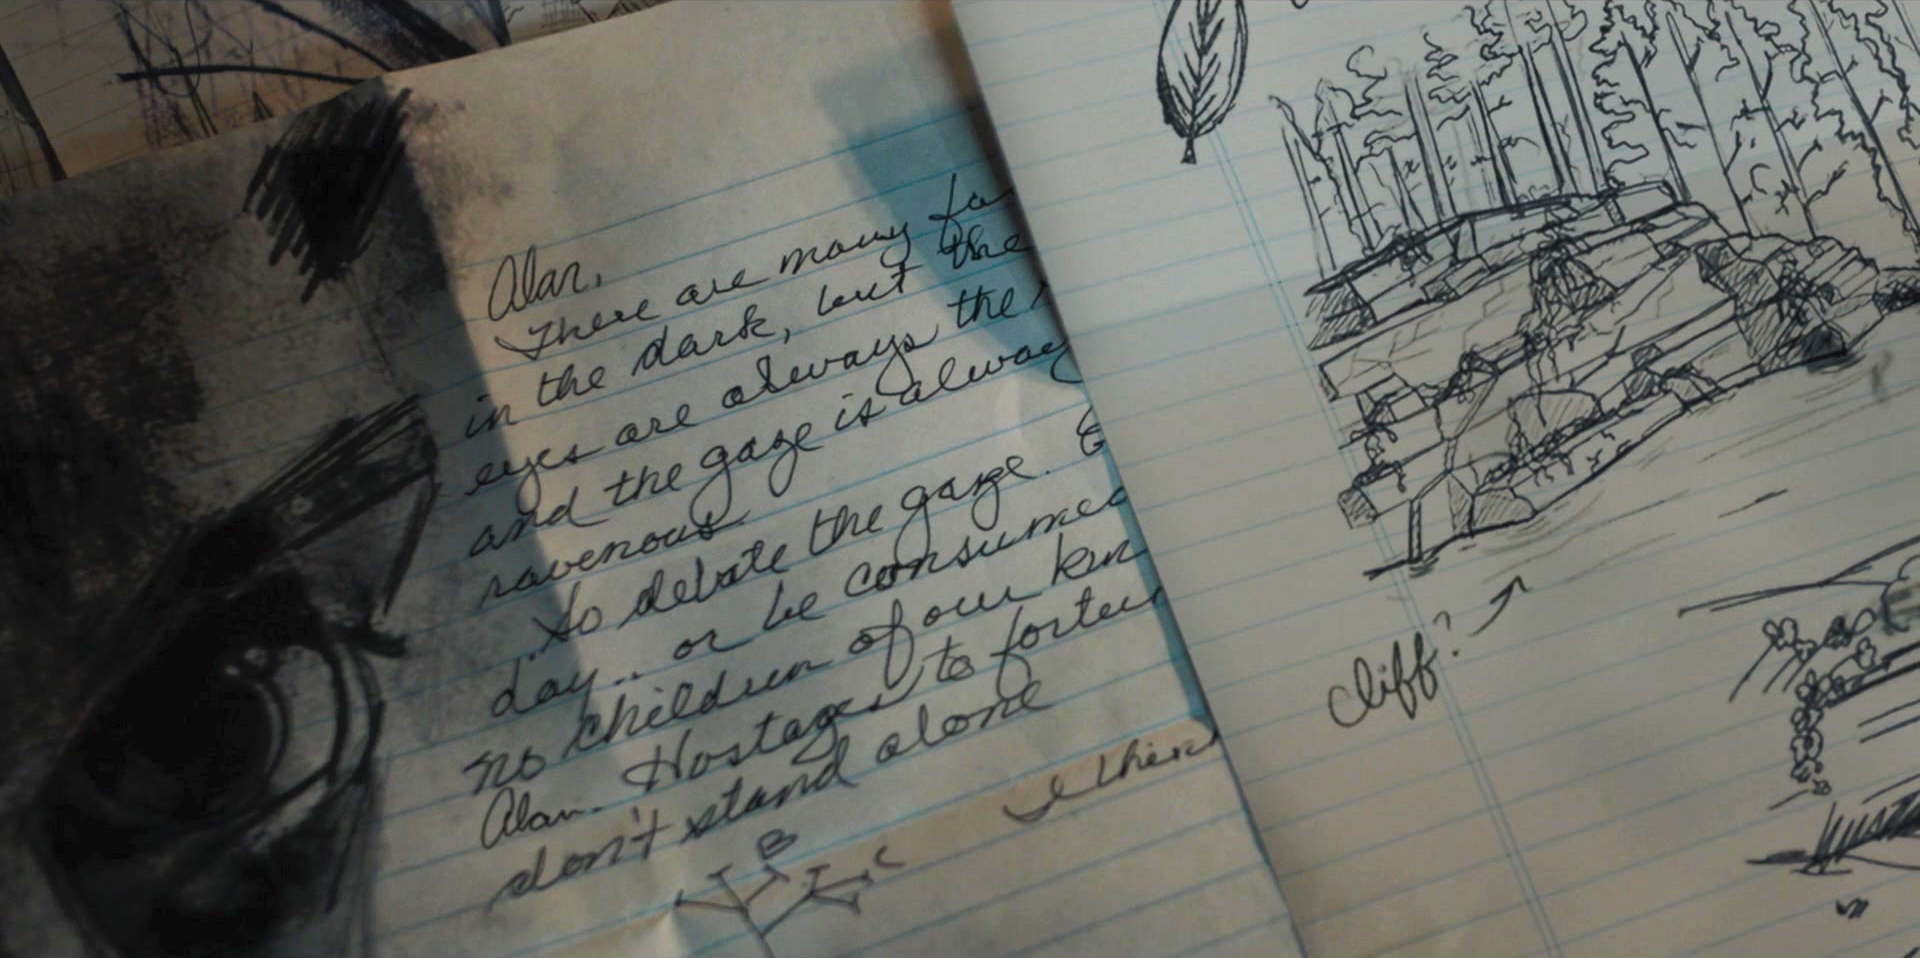 Alan,
There are many fa
in the dark, but the
eyes are always the
and the gaze is alway
ravenous.
to debate the gaze. E
day... or be consumed
no children of our kin
Alan. Hostages to fortu
don't stand alone
I then
B
C
cliff?